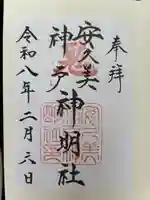 奉拝
安久美
神戸神明社
令和八年二月六日